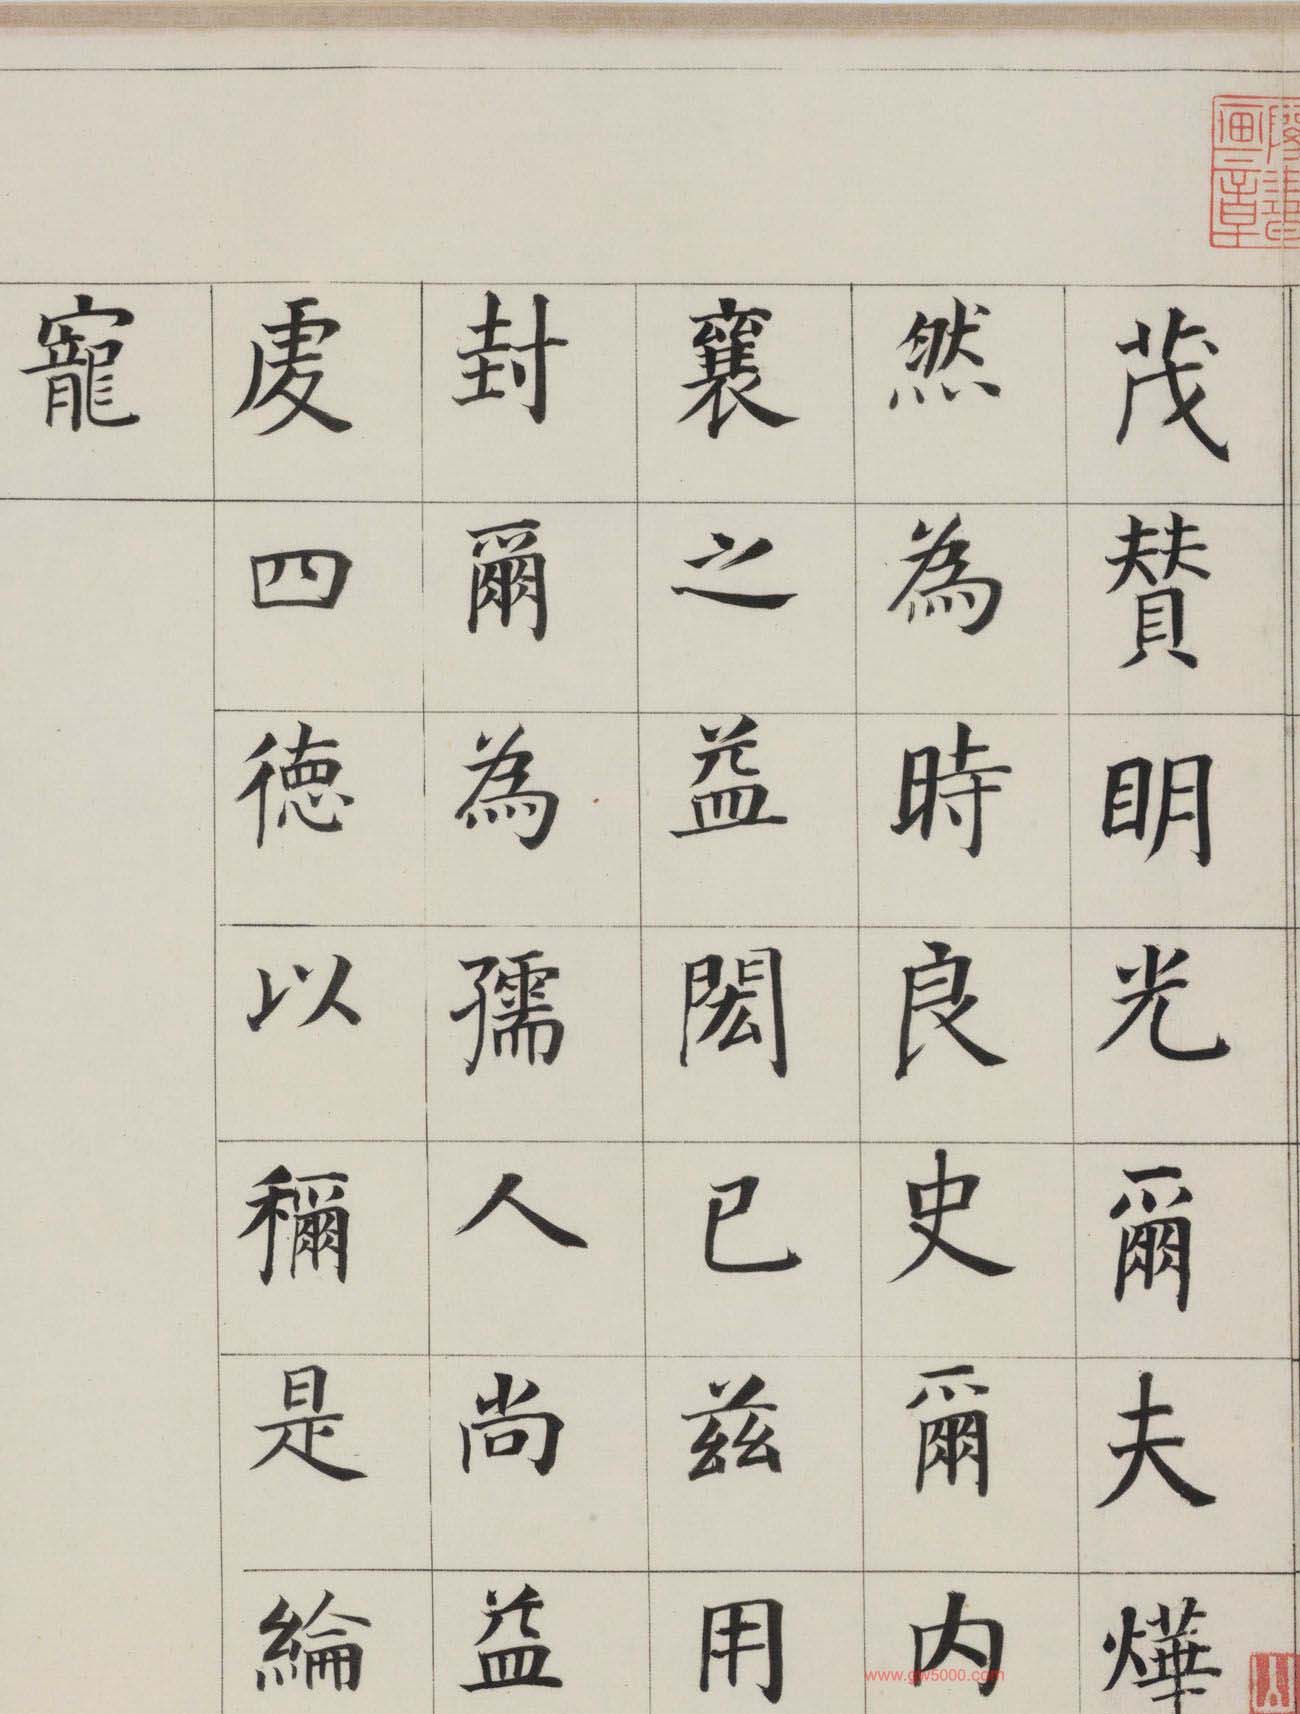 茂賛明光爾夫燁
然為時良史爾内
襄之益閎已茲用
封爾為孺人尚益
䖍四徳以稱是綸
寵
www.gw5000.com